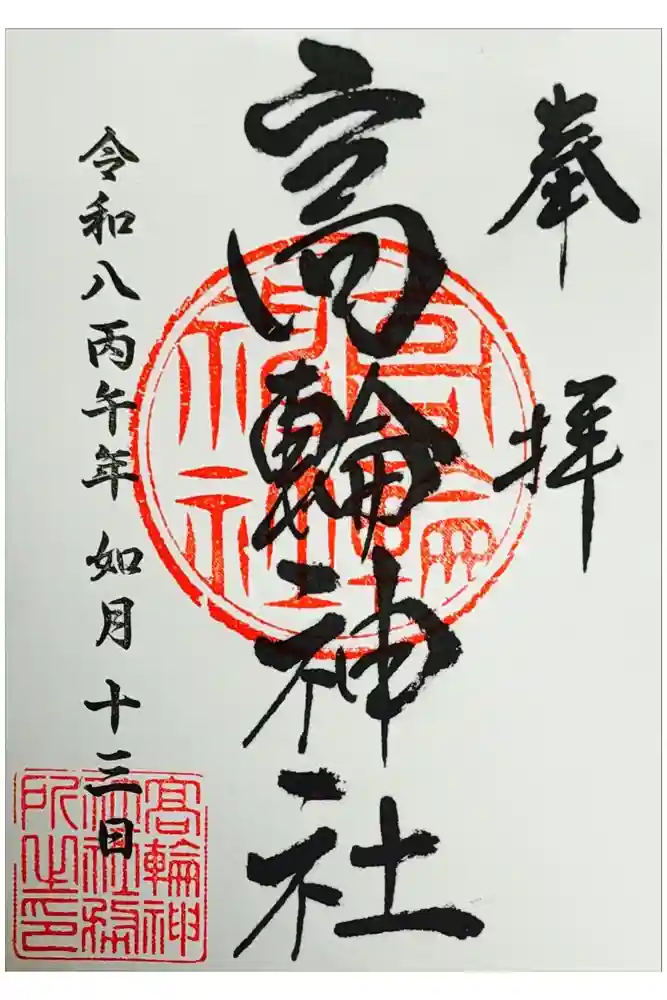 奉拝
高輪神社
令和八丙午年 如月 十三日
高輪神社
髙輪神社社務所之印